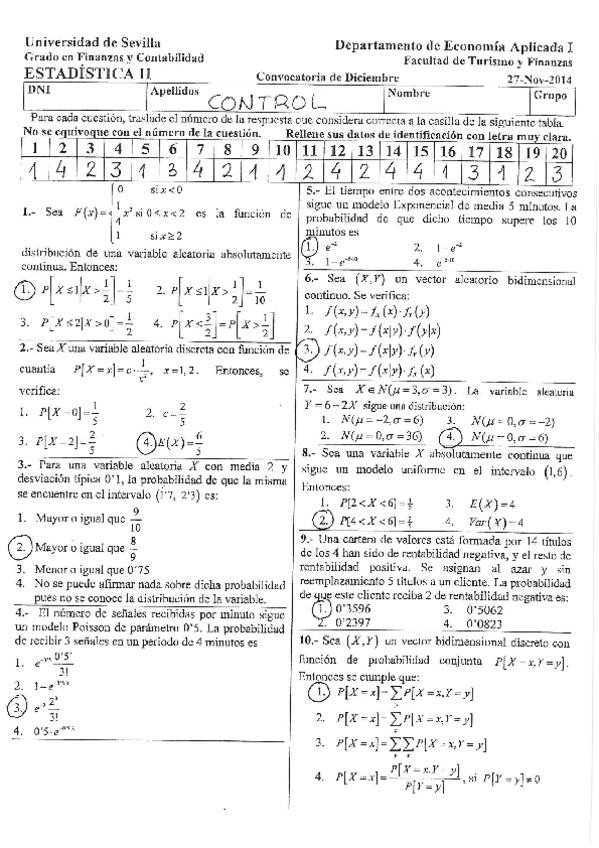 Universidad de Sevilla
Grado en Finanzas y Contabilidad
ESTADÍSTICA II
Departamento de Economía Aplicada I
Facultad de Turismo y Finanzas
Convocatoria de Diciembre 27-Nov-2014
DNI Apellidos Nombre Grupo
CONTROL
Para cada cuestión, traslade el número de la respuesta que considera correcta a la casilla de la siguiente tabla.
No se equivoque con el número de la cuestión. Rellene sus datos de identificación con letra muy clara.
1 2 3 4 5 6 7 8 9 10 11 12 13 14 15 16 17 18 19 20
1 4 2 3 1 3 4 2 1 1 2 4 2 4 4 1 3 1 2 3
1.- Sea F(x) = { 0 si x < 0
1/4 x² si 0 ≤ x < 2 es la función de
1 si x ≥ 2
distribución de una variable aleatoria absolutamente
continua. Entonces:
1. P[X ≤ 1|X > 1/2] = 1/5 2. P[X ≤ 1|X > 1/2] = 1/10
3. P[X ≤ 2|X > 0] = 1/2 4. P[X < 3/2] = P[X > 1/2]
2.- Sea X una variable aleatoria discreta con función de
cuantía P[X = x] = c · 1/x², x = 1, 2. Entonces, se
verifica:
1. P[X = 0] = 1/5 2. c = 2/5
3. P[X = 2] = 2/5 4. E(X) = 6/5
3.- Para una variable aleatoria X con media 2 y
desviación típica 0'1, la probabilidad de que la misma
se encuentre en el intervalo (1'7, 2'3) es:
1. Mayor o igual que 9/10
2. Mayor o igual que 8/9
3. Menor o igual que 0'75
4. No se puede afirmar nada sobre dicha probabilidad
pues no se conoce la distribución de la variable.
4.- El número de señales recibidas por minuto sigue
un modelo Poisson de parámetro 0'5. La probabilidad
de recibir 3 señales en un período de 4 minutos es
1. e^-0'5 0'5³/3!
2. 1 - e
3. e^-2 2³/3!
4. 0'5·e
5.- El tiempo entre dos acontecimientos consecutivos
sigue un modelo Exponencial de media 5 minutos. La
probabilidad de que dicho tiempo supere los 10
minutos es
1. e^-2 2. 1 - e^-2
3. 1 - e^-50 4. e
6.- Sea (X,Y) un vector aleatorio bidimensional
continuo. Se verifica:
1. f(x,y) = fₓ(x)·fᵧ(y)
2. f(x,y) = f(x|y)·f(y|x)
3. f(x,y) = f(x|y)·fᵧ(y)
4. f(x,y) = f(x|y)·fₓ(x)
7.- Sea X∈N(μ=3,σ=3). La variable aleatoria
Y = 6 - 2X sigue una distribución:
1. N(μ = -2, σ = 6) 3. N(μ = 0, σ = -2)
2. N(μ = 0, σ = 36) 4. N(μ = 0, σ = 6)
8.- Sea una variable X absolutamente continua que
sigue un modelo uniforme en el intervalo (1,6).
Entonces:
1. P[2 < X < 6] = 3. E(X) = 4
2. P[4 < X < 6] = 2/5 4. Var(X) = 4
9.- Una cartera de valores está formada por 14 títulos
de los 4 han sido de rentabilidad negativa, y el resto de
rentabilidad positiva. Se asignan al azar y sin
reemplazamiento 5 títulos a un cliente. La probabilidad
de que este cliente reciba 2 de rentabilidad negativa es:
1. 0'3596 3. 0'5062
2. 0'2397 4. 0'0823
10.- Sea (X,Y) un vector bidimensional discreto con
función de probabilidad conjunta P[X = x,Y = y].
Entonces se cumple que:
1. P[X = x] = ∑ P[X = x,Y = y]
2. P[X = x] = ∑ P[X = x,Y = y]
3. P[X = x] = ∑∑ P[X = x,Y = y]
4. P[X = x] = P[X = x,Y = y]/P[Y = y], si P[Y = y] ≠ 0